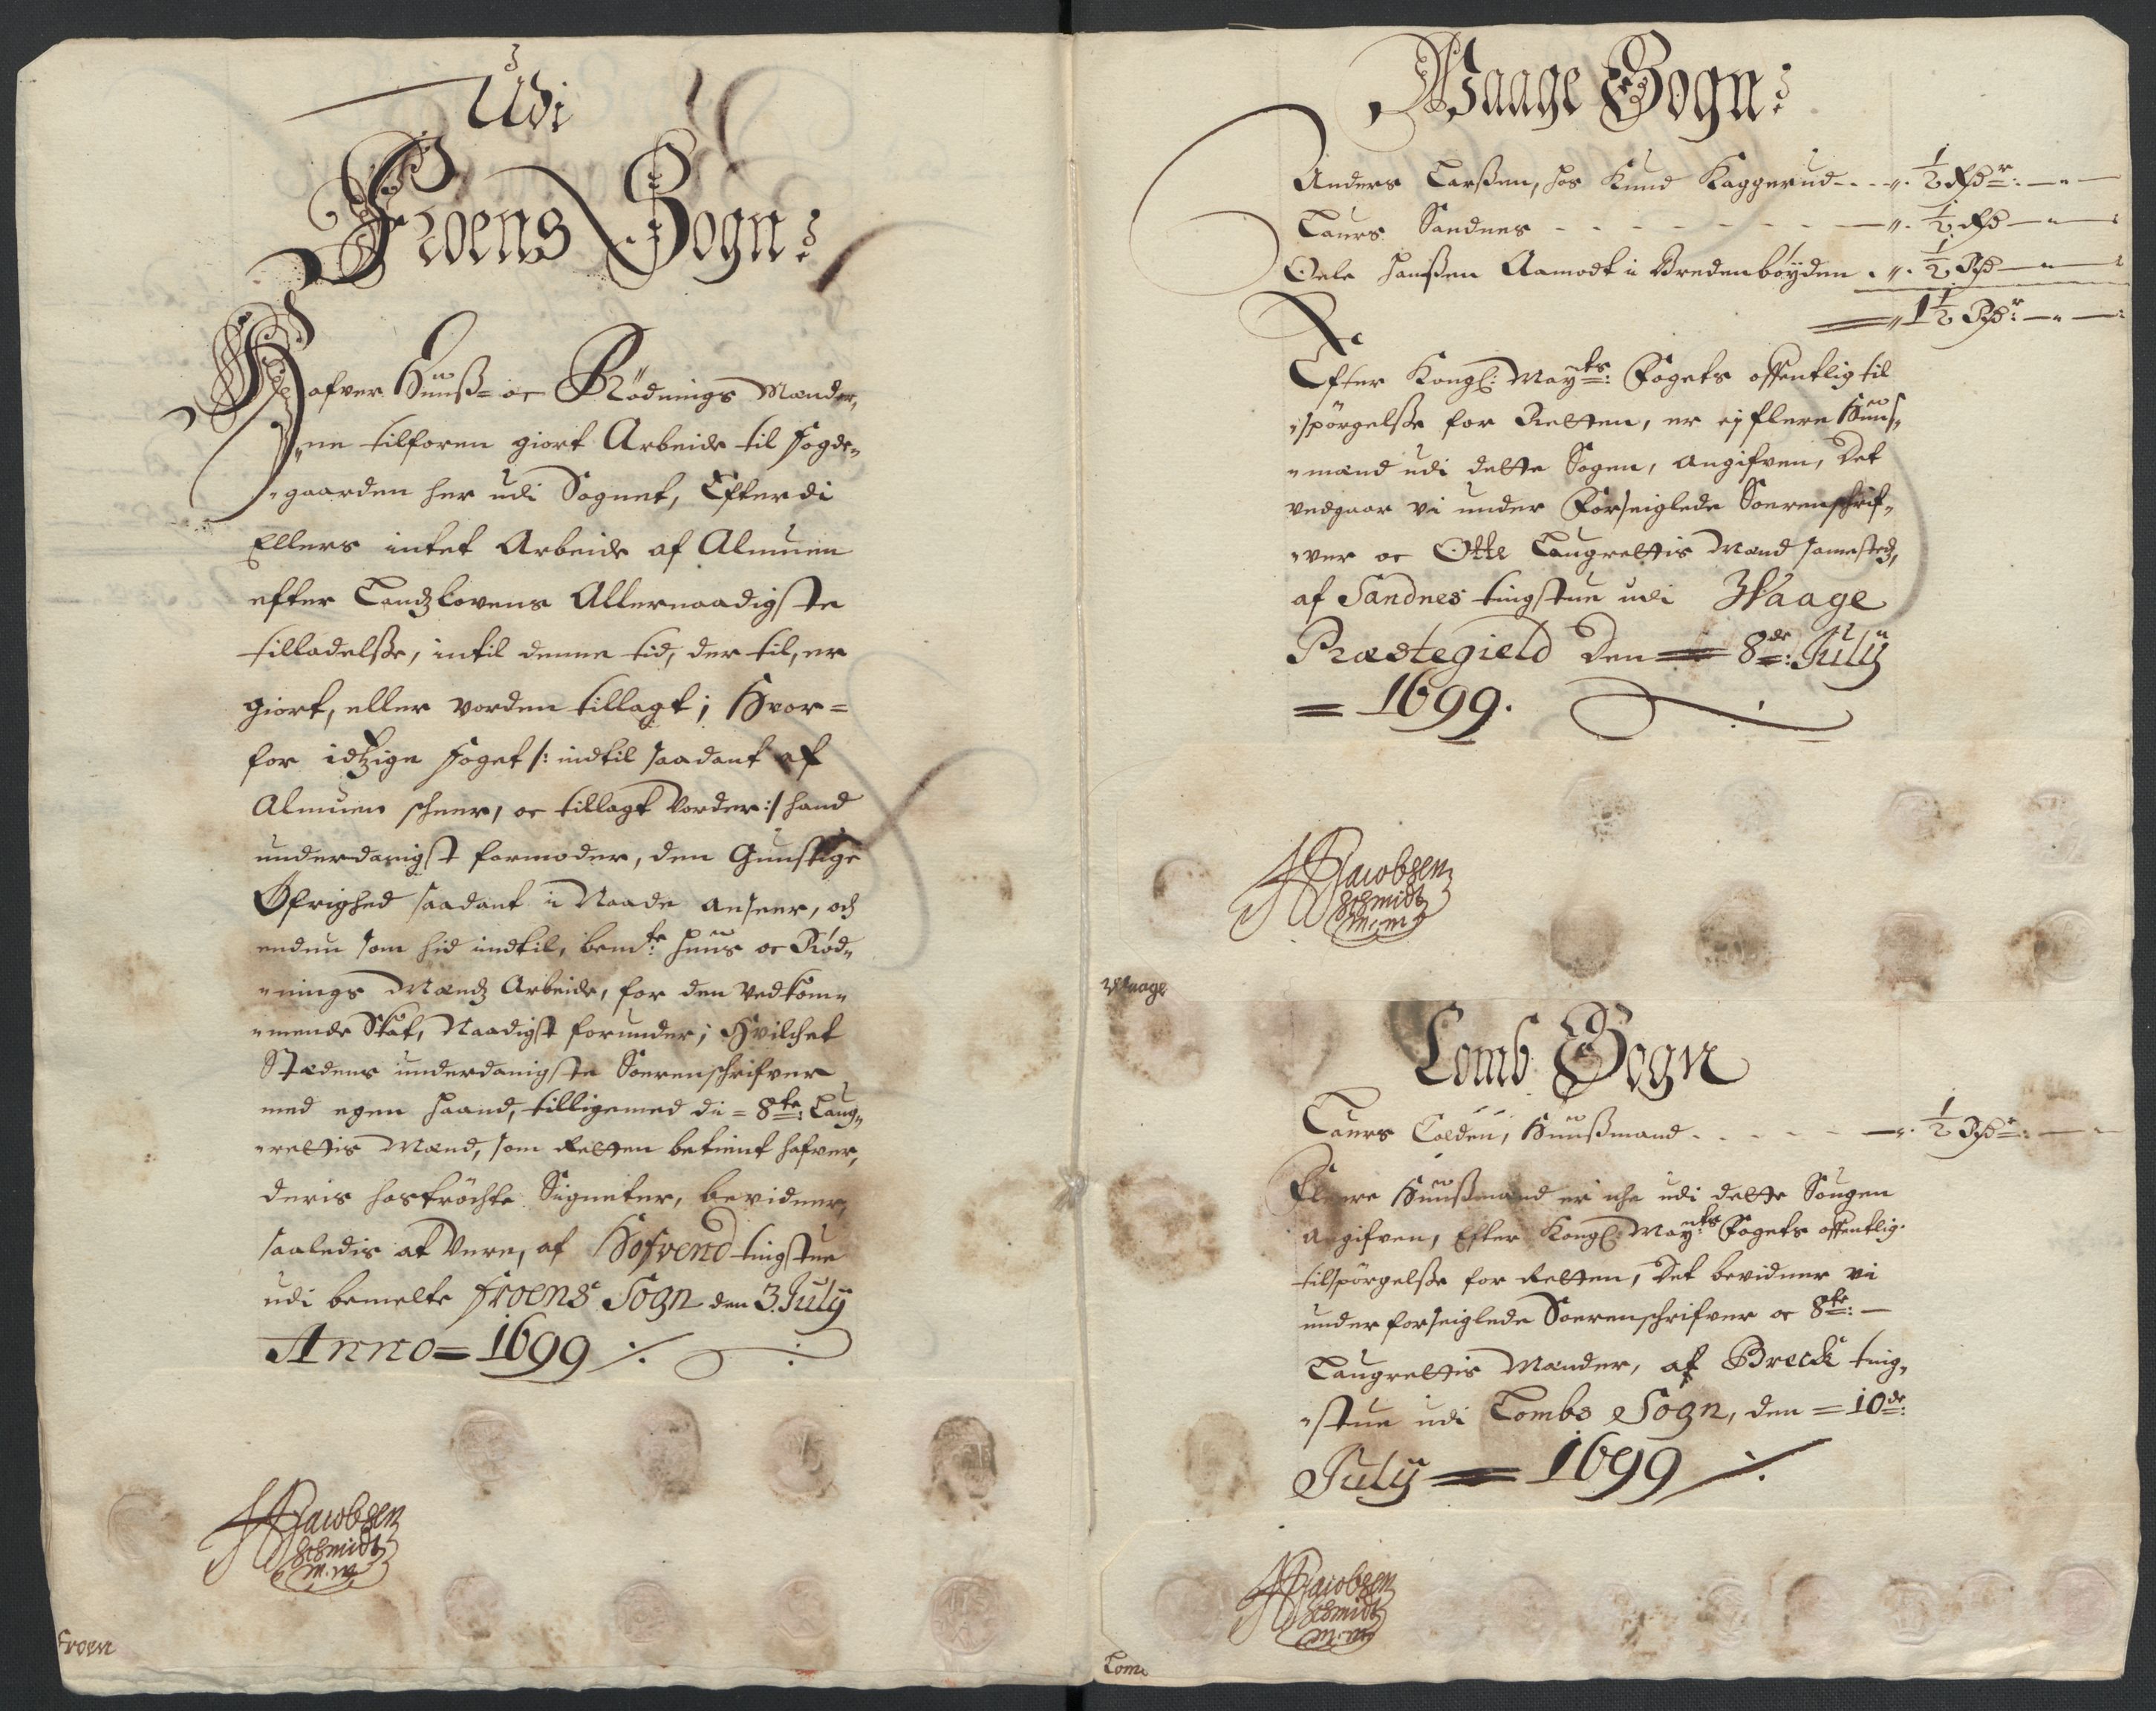 Udi
Froens Sogn:
Hafver Huuß- oc Rödnings Mænder„
„ne tilforen giort Arbeide til fogde„
„gaarden her udi Sognet, Efterdi
Ellers intet Arbeide af Almuen
efter Landzlovens Allernaadigste
tilladelsse, intil denne tid, der til, er
giort, eller vorden tillagt; Hvor=
for idtzige foget /: indtil saadant af
Almuen scheer, oc tillagt Vorder :/ hand
underdanigst formoder, den Gunstige
Öfrighed saadant i Naade anseer, och
endnu som hid indtil, bemte: huus oc Röd„
„nings Mændz Arbeide, for den Vedkom„
„mende Skat, Naadigst forunder; Hvilchet
Stædens underdanigste Soerenschrifver
med egen haand, tilligemed di = 8te: Laug„
„rettis Mænd, som Retten betient hafver,
deris hoströchte Signeter, bevidner,
saaledis at Være, af Hofvend tingstue
udi bemelte Froens Sogn den 3. July
Anno = 1699 ./.
Jacobsen
Schmidt
m. m
Froen
Waage Sogn:
Anders Larßen, hos Knud Kaggerud - - „. ½ Rdr: — „ —
Laurs Sandnes - - - - - — „. ½ Rd — „ —
Oele Hanßen Aamodt i Bredenböyden . „. ½ Rd — „ —
„ 1½ Rdr: — „ —
Efter Kongl: Mayts: Fogets offentlig til
„spörgelsse for Retten, er ej flere Huus„
„mænd udi dette Sogen, angifven, Det
vedgaar vi under Forseiglede Soerenschrif„
„ver oc Otte Laugrettis Mænd samestedz,
af Sandnes tingstue udi Waage
Præstegield Den = 8de: July
= 1699.
Jacobsen
Schmidt
m. m
Waage
Lomb Sogn
Laurs Colden, Huußmand - - - - — „. ½ Rdr: —
Fleere Huußmænd er iche udi dette Sougen
Angifven, Efter Kongl: Mayts: Fogets offentlig
tilspörgelsse for Retten, Det bevidner vi
under forseiglede Soerenschrifver oc 8te: —
Laugrettis Mænder, af Breck ting„
„stue udi Lombs Sogn, den = 10de:
July = 1699 ./.
Jacobsen
Schmidt
m. m
Lomb